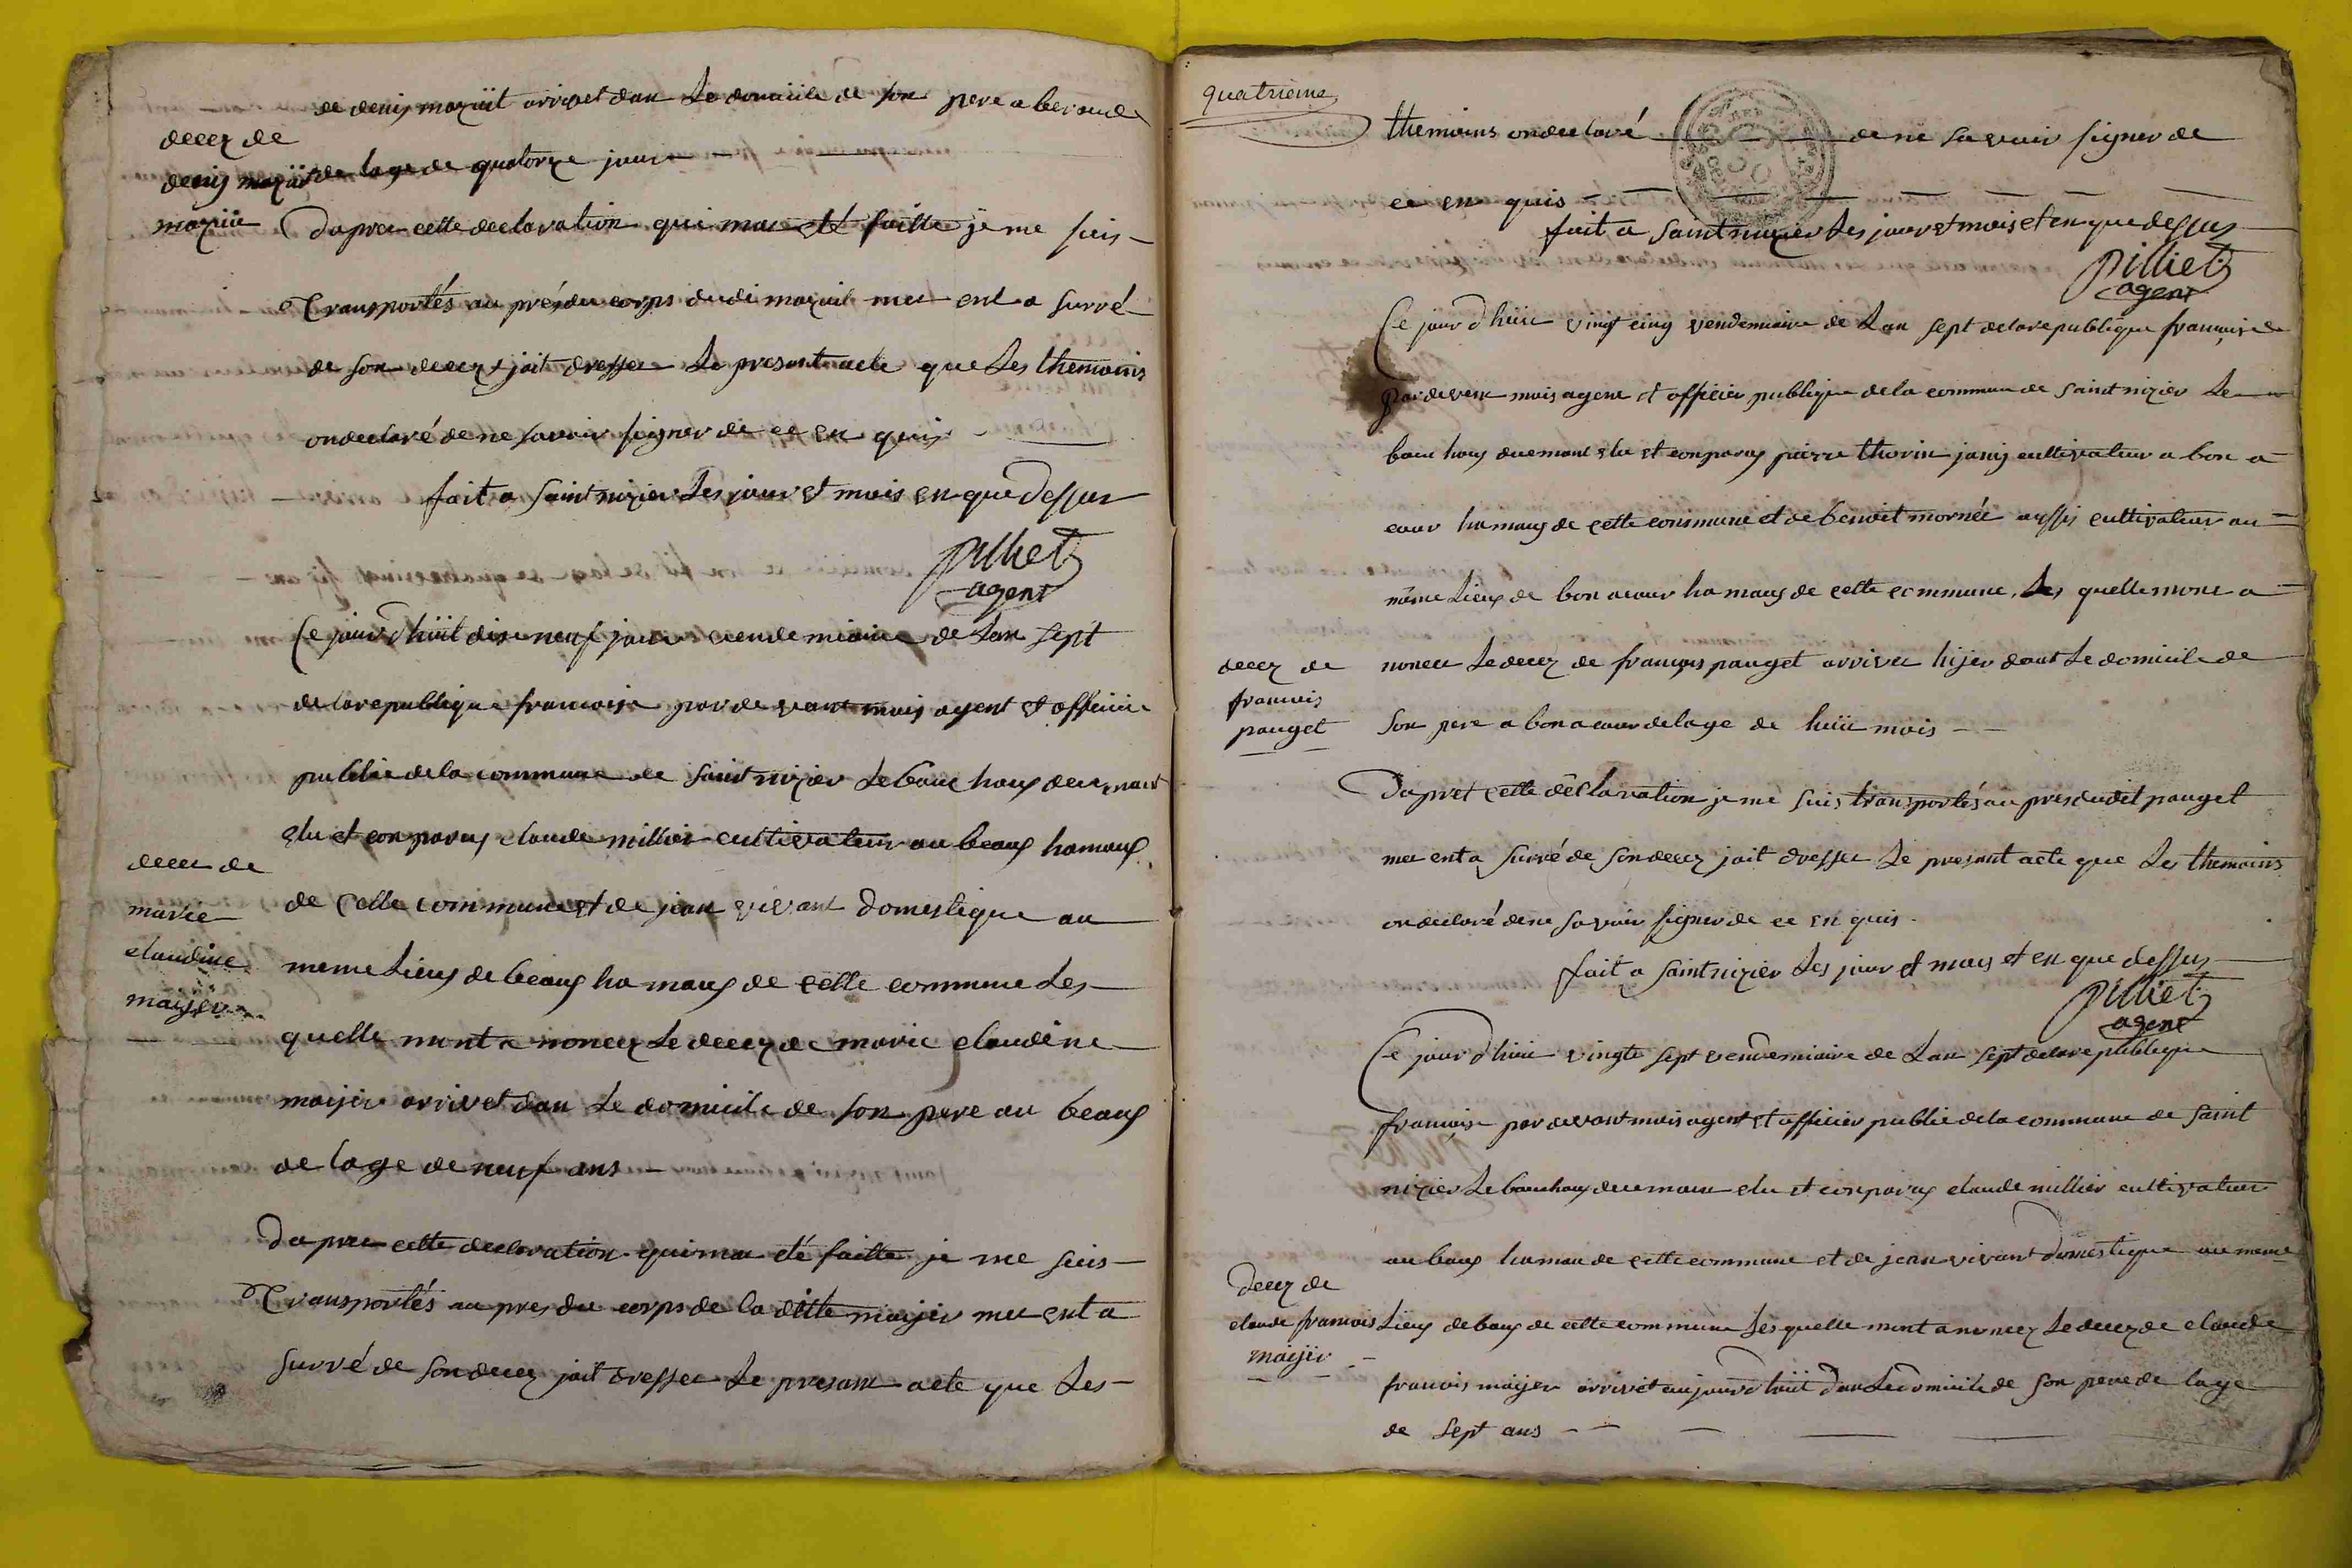 de denis maziit arrivet dan Le domicile de son pere a
decez de
denis maziit de lage de quatorze jour
maziit
Dapres cette declaration qui mas eté faitte je me suis
Transportés au prés du corps dudi maziit
de son decez jait dresser Le present acte que Les themoins
ondeclaré de ne savoir signer de ce en quis
fait a saint nizier Les jour et mois en que dessus
pilliet
agent
Ce jourdhuit dixe neuf jour vendemiaire de Lan sept
de larepublique francoise par de veant mois agent et officier
public de la commune de saint nizier Le bouchoux
elu et comparus claude millier cultivateur au beaux hamaux
decez de
marie
claudine
maijer
de cette commune et de jean vivant domestique au
meme Lieux de beaux hamaux de cette commune Les
quelle mont a noncez Le decez de marie claudine
maijer arrivet dan Le domicile de son pere au beaux
de lage de neuf ans
Dapres cette declaration quimas eté faitte je me suis
Transportés au pres du corps de la ditte maijer met ent a
surré de son decez jait dresser Le present acte que Les
quatrieme
themoins ondeclaré de ne savoir signer de
ce en quis
fait a saint nizier Les jour et mois et en que dessus
pilliet
agent
Ce jour dhuit vingt cinq vendemiaire de Lan sept de larepublique francoise
par devent mois agent et officier publique de la commune de saint nizier Le
bouchoux elu et comparus pierre thorin janis cultivateur a bon a
cour hamaux de cette commune et de benoit mornée aussis cultivateur au
même Lieux de bon acour hamaux de cette commune, Les quelle mont a
decez de
francois
pauget
noncer Le decez de françois pauget arriver hijer dant Le domicile de
son pere a bon a cour de lage de huit mois
Dapret cette déclaration je me suis transportés au pres dudit pauget
met ent a surré de son decez jait dresser Le present acte que Les themoins
ondeclaré de ne savoir signer de ce en quis
fait a saint nizier Les jour et mois et en que dessus
pilliet
agent
Ce jour dhuit vingte sept vendemiaire de Lan sept de larepublique
francoise par devant mois agent et officier public de la commune de saint
nizier Le bouchoux elu et comparus claude millier cultivateur
au beaux hamau de cette commune et de jean vivant domestique au meme
Decez de
claude francois
maijer
Lieux de baux de cette commune Les quelle mont anoncez Le decez de claude
francois maijer arrivet aujourdhuit dan Le domicile de son pere de lage
de sept ans